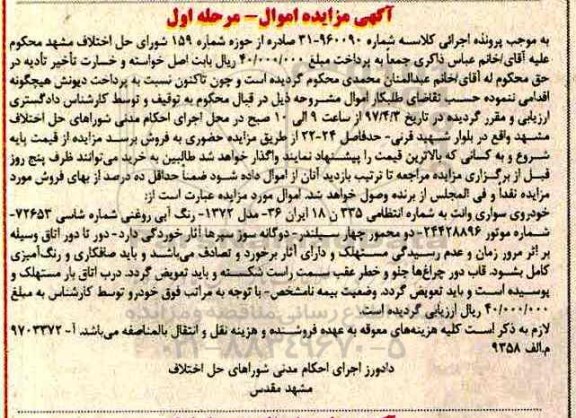 آگهی مزایده اموال- مرحله اول
به موجب پرونده اجرائی کلاسه شماره ۹۶۰۰۹۰-۳۱ صادره از حوزه شماره ۱۵۹ شورای حل اختلاف مشهد محکوم
علیه آقای/خانم عباس ذاکری جمعاً به پرداخت مبلغ ۴۰/۰۰۰/۰۰۰ ریال بابت اصل خواسته و خسارت تأخیر تأدیه در
حق محکوم له آقای/خانم عبدالمنان محمدی محکوم گردیده است و چون تاکنون نسبت به پرداخت دیونش هیچگونه
اقدامی ننموده حسب تقاضای طلبکار اموال مشروحه ذیل در قبال محکوم به توقیف و توسط کارشناس دادگستری
ارزیابی و مقرر گردیده در تاریخ ۹۷/۴/۳ از ساعت ۹ الی ۱۰ صبح در محل اجرای احکام مدنی شوراهای حل اختلاف
مشهد واقع در بلوار شهید قرنی- حدفاصل ۲۴-۲۲ از طریق مزایده حضوری به فروش برسد مزایده از قیمت پایه
شروع و به کسانی که بالاترین قیمت را پیشنهاد نمایند واگذار خواهد شد طالبین به خرید می‌توانند ظرف پنج روز
قبل از برگزاری مزایده مراجعه تا ترتیب بازدید آنان از اموال داده شود ضمناً حداقل ده درصد از بهای فروش مورد
مزایده نقداً و فی المجلس از برنده وصول خواهد شد. اموال مورد مزایده عبارت است از:
خودروی سواری وانت به شماره انتظامی ۳۳۵ ن ۱۸ ایران ۳۶- مدل ۱۳۷۲- رنگ آبی روغنی شماره شاسی ۷۲۶۵۳-
شماره موتور ۲۴۴۲۸۸۹۶- دو محمور چهار سیلندر- دوگانه سوز سپرها آثار خوردگی دارد- دور تا دور اتاق وسیله
بر اثر مرور زمان و عدم رسیدگی مستهلک و دارای آثار برخورد و تصادف می‌باشد و باید صافکاری و رنگ‌آمیزی
کامل بشود. قاب دور چراغ‌ها جلو و خطر عقب سمت راست شکسته و باید تعویض گردد. درب اتاق بار مستهلک و
پوسیده است و باید تعویض گردد. وضعیت بیمه نامشخص- با توجه به مراتب فوق خودرو توسط کارشناس به مبلغ
۴۰/۰۰۰/۰۰۰ ریال ارزیابی گردیده است.
لازم به ذکر است کلیه هزینه‌های معوقه به عهده فروشنده و هزینه نقل و انتقال بالمناصفه می‌باشد. آ- ۹۷۰۳۳۷۲
م.الف ۹۳۵۸
دادورز اجرای احکام مدنی شوراهای حل اختلاف
مشهد مقدس